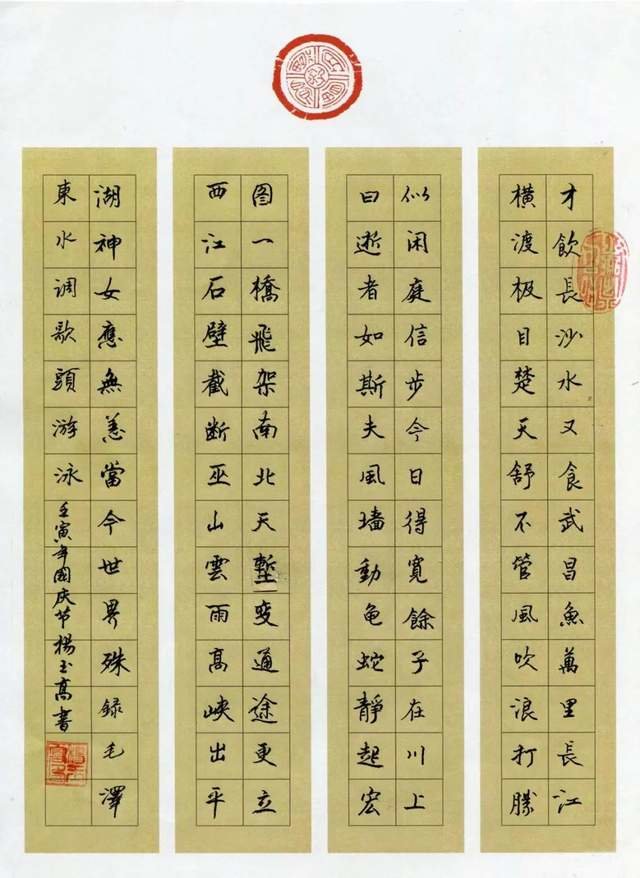 才飲長沙水又食武昌魚萬里長江
橫渡极目楚天舒不管風吹浪打勝
似闲庭信步今日得寬餘子在川上
曰逝者如斯夫風墙動龟蛇靜起宏
图一橋飛架南北天塹变通途更立
西江石壁截断巫山雲雨高峡出平
湖神女應無恙當今世界殊録毛澤
東水调歌頭游泳壬寅年國庆节楊玉高書